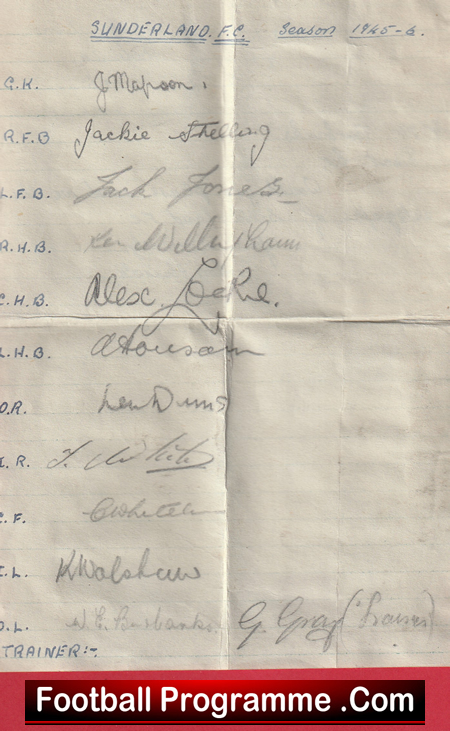 SUNDERLAND. F.C. Season 1945-6.
G.K. J Mapson.
R.F.B Jackie Stelling
L.F.B. Jack Jones
R.H.B. Ken Willingham
C.H.B. Alex. Lockie.
L.H.B. A Housam
O.R. Len Duns
I.R.
C.F. C Whitelum
I.L. K Walshaw
O.L. W. E. Burbanks G. Gray (Trainer)
TRAINER:-
Football Programme .Com